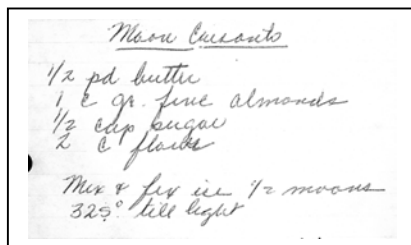 Moon Cresants
1/2 pd butter
1 c gr. fine almonds
1/2 cup sugar
2 c flour
Mix & fix in 1/2 moons
325° till light